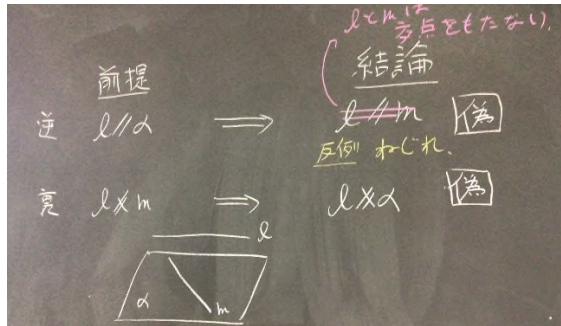 lとmは
交点をもたない.
前提
結論
逆 l//α ⟹ l//m 偽
反例 ねじれ.
裏 l∦m ⟹ l∦α 偽
l
α m